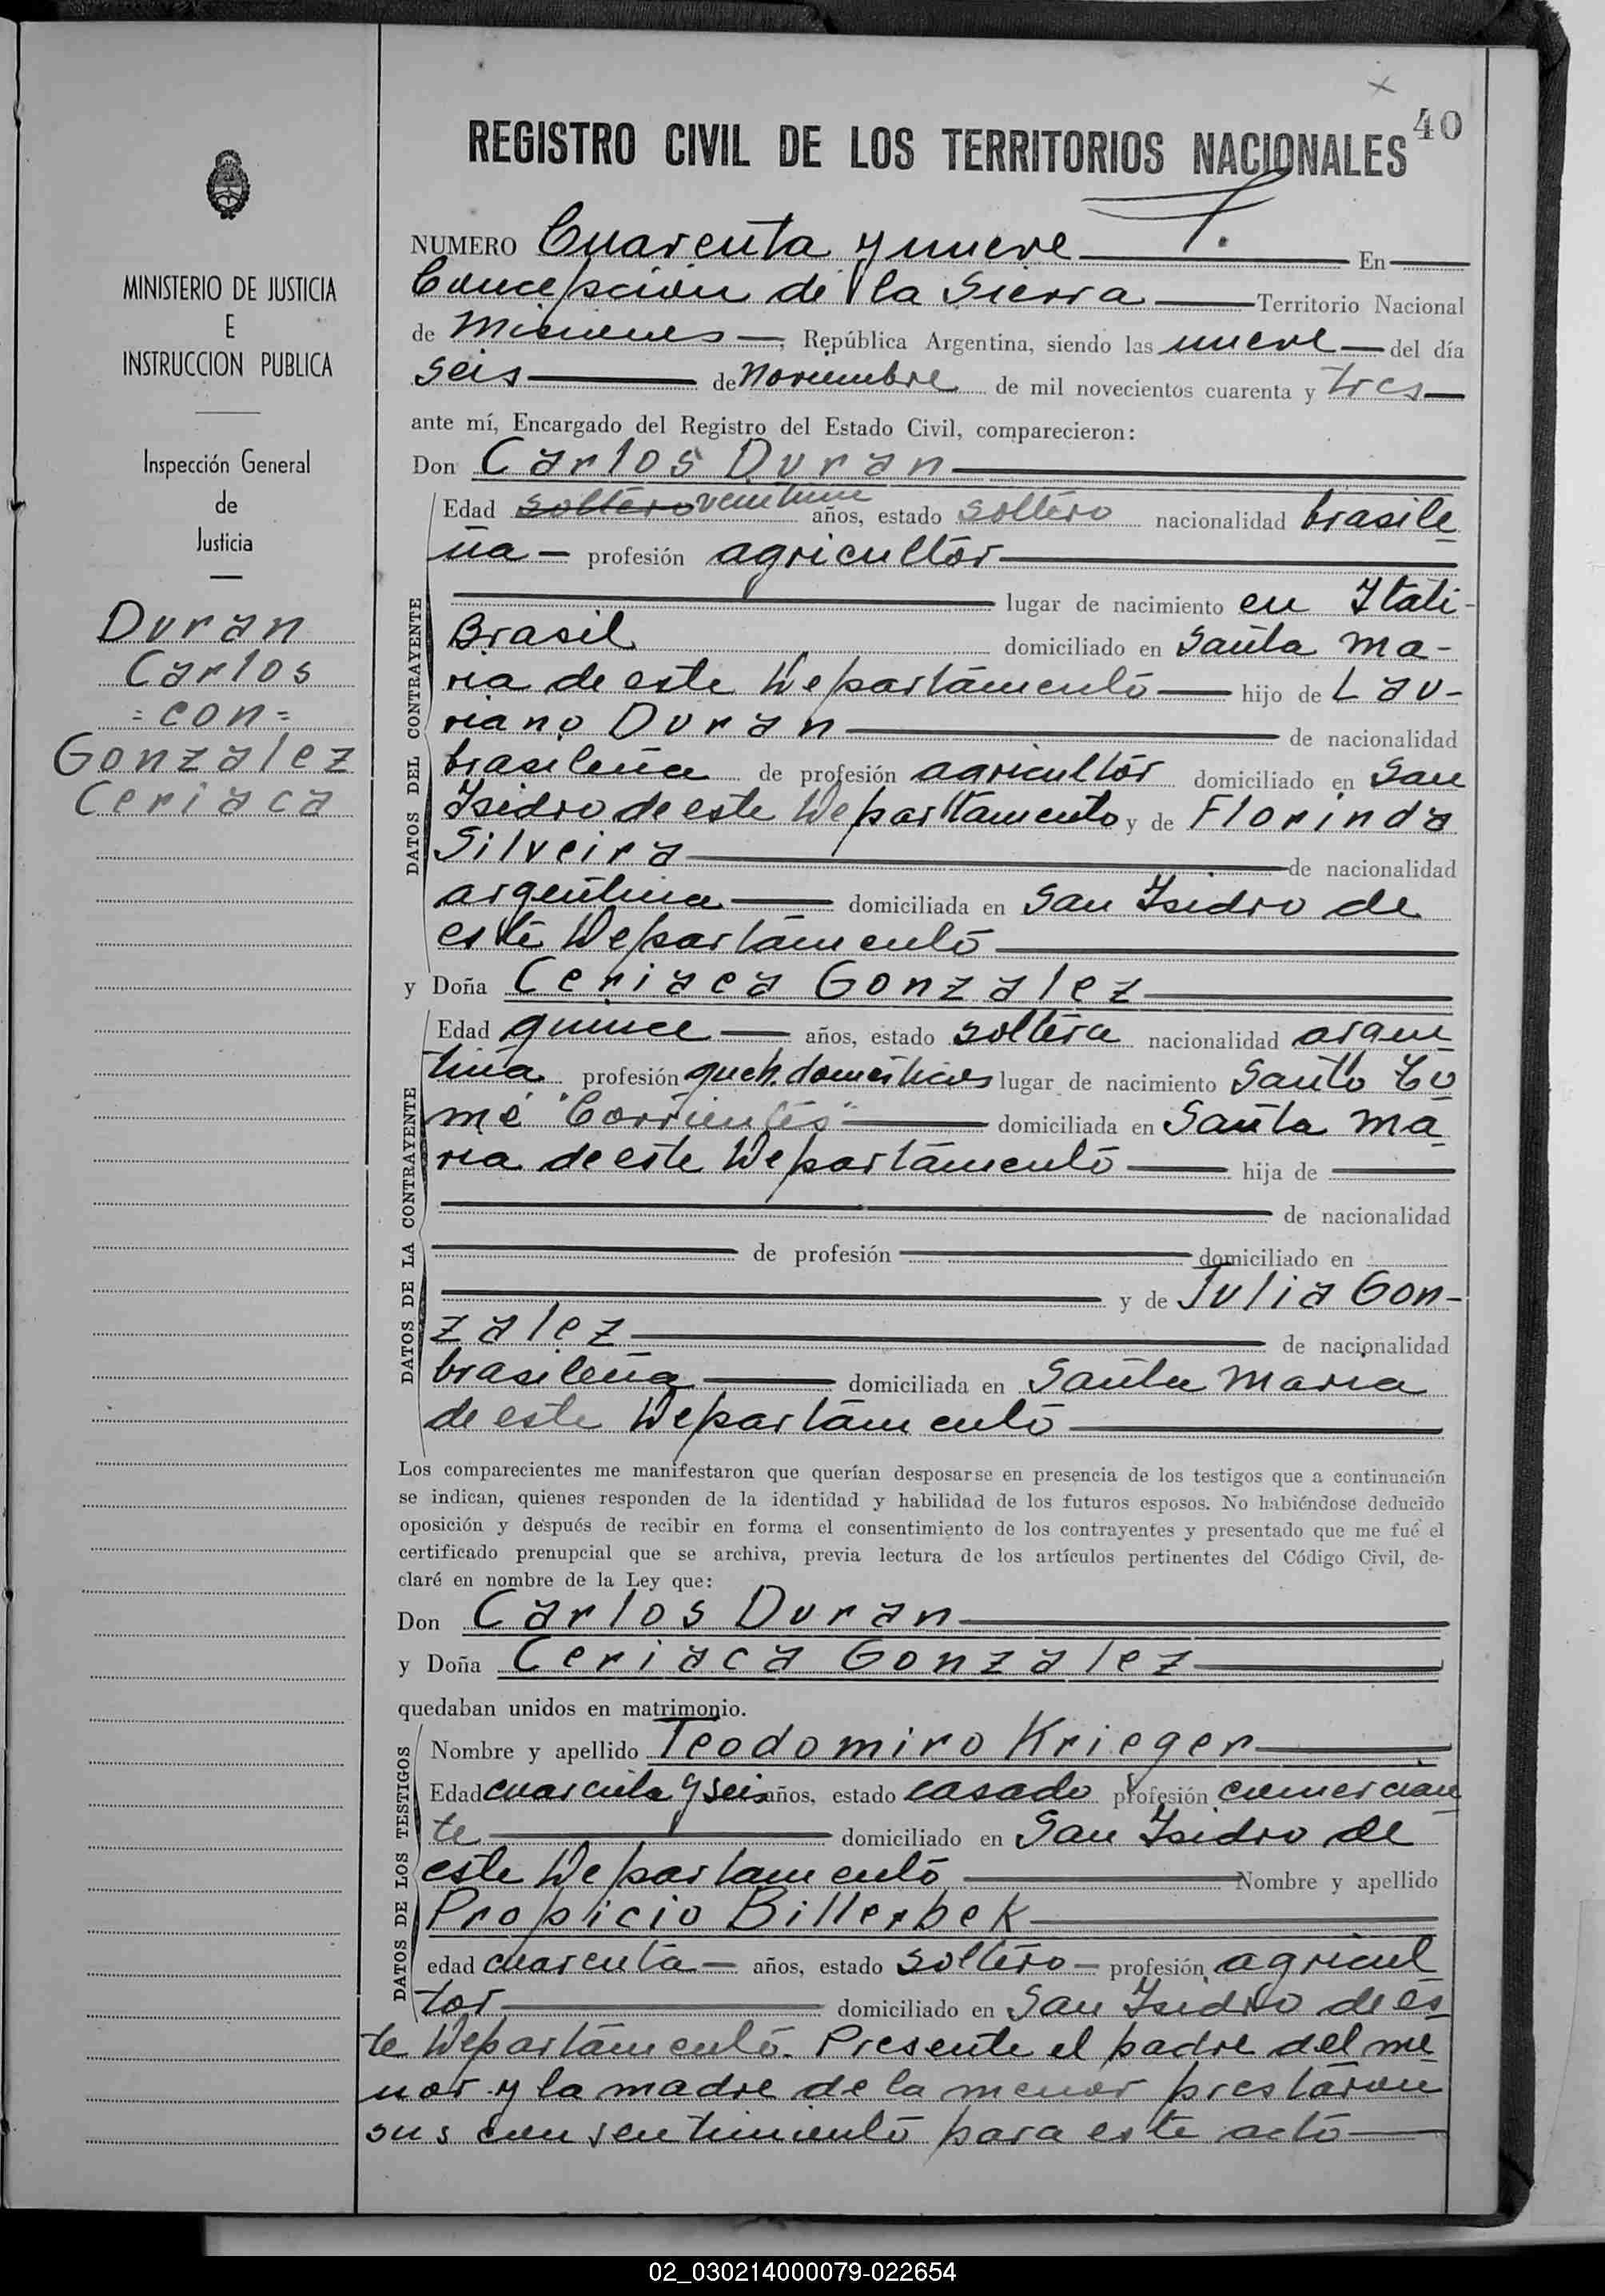 40
REGISTRO CIVIL DE LOS TERRITORIOS NACIONALES
MINISTERIO DE JUSTICIA
E
INSTRUCCION PUBLICA
Inspección General
de
Justicia
Duran
Carlos
=con=
Gonzalez
Ceriaca
NUMERO Cuarenta y nueve En
Concepcion de la Sierra Territorio Nacional
de Misiones, República Argentina, siendo las nueve del día
seis de noviembre de mil novecientos cuarenta y tres
ante mí, Encargado del Registro del Estado Civil, comparecieron:
Don Carlos Duran
Edad soltero años, estado soltero nacionalidad brasile
ña profesión agricultor
lugar de nacimiento en Itati-
Brasil domiciliado en Santa Ma-
ria de este Departamento hijo de Lau-
riano Duran de nacionalidad
brasileña de profesión agricultor domiciliado en San
Isidro de este Departamento y de Florinda
Silveira de nacionalidad
argentina domiciliada en San Isidro de
este Departamento
y Doña Ceriaca Gonzalez
Edad quince años, estado soltera nacionalidad argen
tina profesión queh. domesticos lugar de nacimiento Santo To
mé "Corrientes" domiciliada en Santa Ma
ria de este Departamento hija de
de nacionalidad
de profesión domiciliado en
y de Julia Gon-
zalez de nacionalidad
brasileña domiciliada en Santa Maria
de este Departamento
Los comparecientes me manifestaron que querían desposarse en presencia de los testigos que a continuación
se indican, quienes responden de la identidad y habilidad de los futuros esposos. No habiéndose deducido
oposición y después de recibir en forma el consentimiento de los contrayentes y presentado que me fué el
certificado prenupcial que se archiva, previa lectura de los artículos pertinentes del Código Civil, de-
claré en nombre de la Ley que:
Don Carlos Duran
y Doña Ceriaca Gonzalez
quedaban unidos en matrimonio.
Nombre y apellido Teodomiro Krieger
Edad cuarenta y seis años, estado casado profesión comercian
te domiciliado en San Isidro de
este Departamento Nombre y apellido
Propicio Billerbek
edad cuarenta años, estado soltero profesión agricul
tor domiciliado en San Isidro de es
te Departamento. Presente el padre del me
nor y la madre de la menor prestaron
sus consentimiento para este acto
DATOS DEL CONTRAYENTE
DATOS DE LA CONTRAYENTE
DATOS DE LOS TESTIGOS
02_030214000079-022654